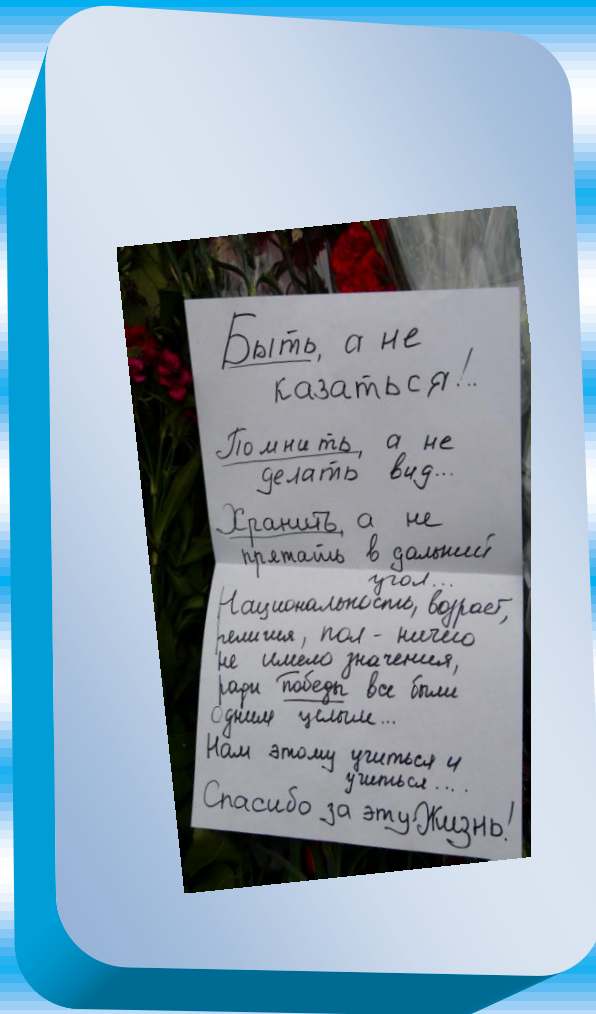 Быть, а не
казаться!..
Помнить, а не
делать вид...
Хранить, а не
прятать в дальний
угол...
Национальность, возраст,
религия, пол - ничего
не имело значения,
ради победы все были
одним целым...
Нам этому учиться и
учиться....
Спасибо за эту Жизнь!